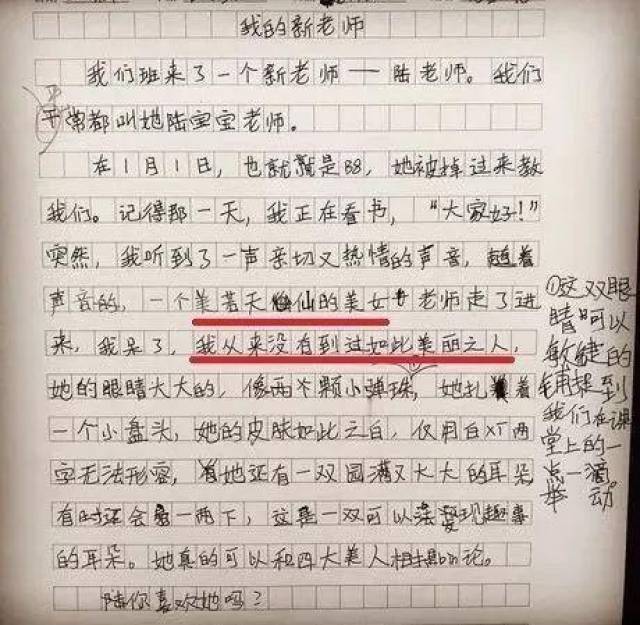 我的新老师
我们班来了一个新老师——陆老师。我们
平常都叫她陆宝宝老师。
在1月1日,也就是88,她被掉过来教
我们。记得那一天,我正在看书,“大家好!”
突然,我听到了一声亲切又热情的声音,随着
声音的,一个美若天仙的美女老师走了进
来,我呆了,我从来没有到过如此美丽之人,
她的眼睛大大的,像两个颗小弹珠,她扎着
一个小盘头,她的皮肤如此之白,仅用白X丁两
字无法形容,她还有一双圆满又大大的耳朵
有时还会一两下,这是一双可以发现趣事
的耳朵。她真的可以和四大美人相提bin论。
陆你喜欢她吗?
①这双眼
睛可以
敏健的
捕捉到
我们在课
堂上的一
点一滴
举动